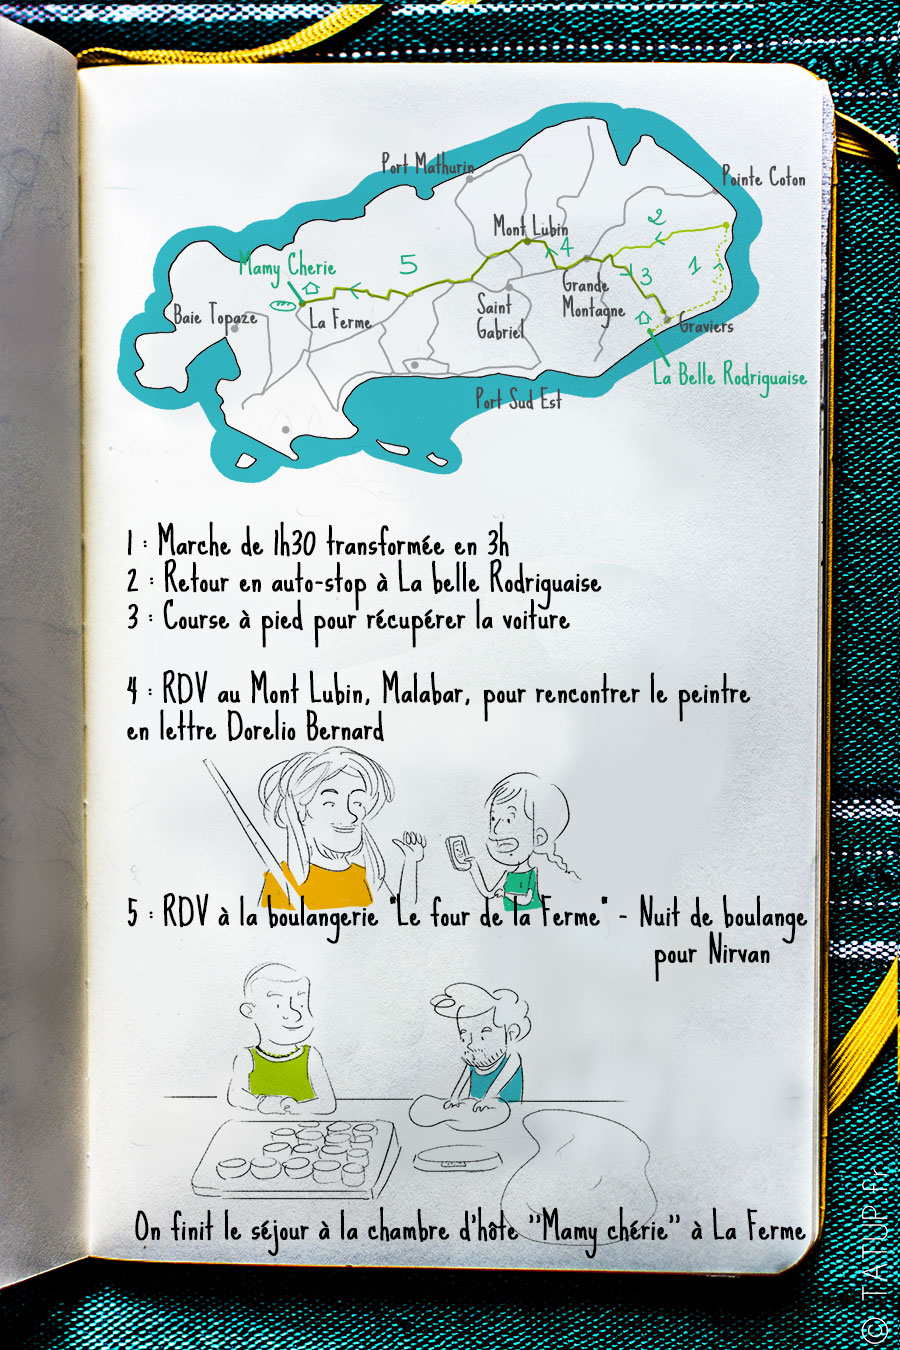 Port Mathurin
Pointe Coton
Mont Lubin
2
4
Mamy Cherie
5
3
1
Grande
Montagne
Saint
Gabriel
Baie Topaze
La Ferme
Graviers
La Belle Rodriguaise
Port Sud Est
1 : Marche de 1h30 transformée en 3h
2 : Retour en auto-stop à La belle Rodriguaise
3 : Course à pied pour récupérer la voiture
4 : RDV au Mont Lubin, Malabar, pour rencontrer le peintre
en lettre Dorelio Bernard
5 : RDV à la boulangerie "Le four de la Ferme" - Nuit de boulange
pour Nirvan
On finit le séjour à la chambre d'hôte ''Mamy chérie'' à La Ferme
© TATUP.fr